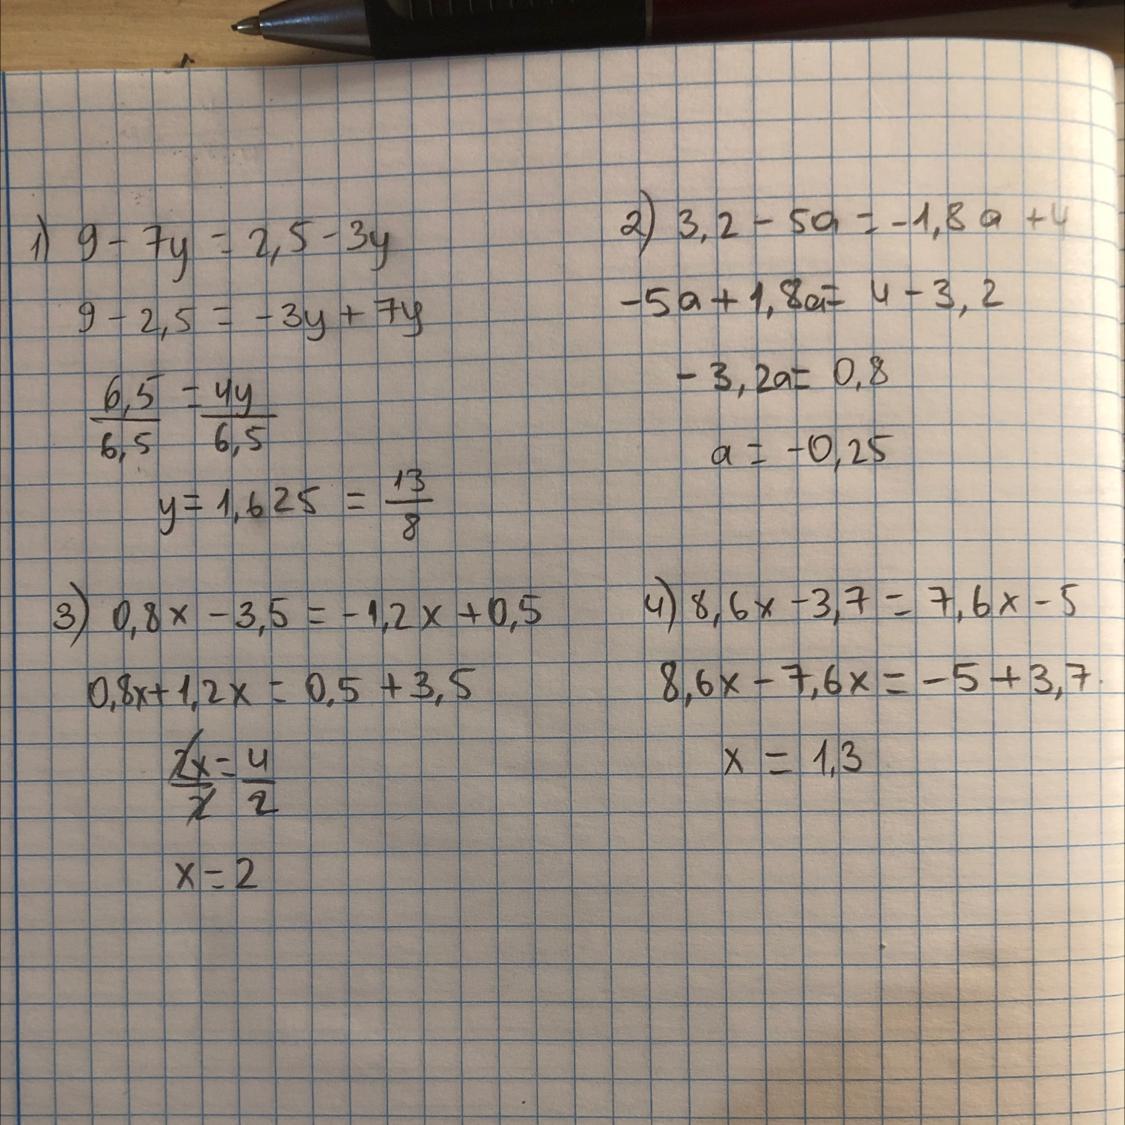 1) 9 - 7y = 2,5 - 3y
9 - 2,5 = -3y + 7y
6,5/6,5 = 4y/6,5
y = 1,625 = 13/8
2) 3,2 - 5a = -1,8a + 4
-5a + 1,8a = 4 - 3,2
-3,2a = 0,8
a = -0,25
3) 0,8x - 3,5 = -1,2x + 0,5
0,8x + 1,2x = 0,5 + 3,5
2x/2 = 4/2
x = 2
4) 8,6x - 3,7 = 7,6x - 5
8,6x - 7,6x = -5 + 3,7
x = 1,3